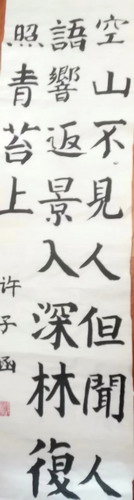 空山不見人但聞人
語響返景入深林復
照青苔上
许子涵